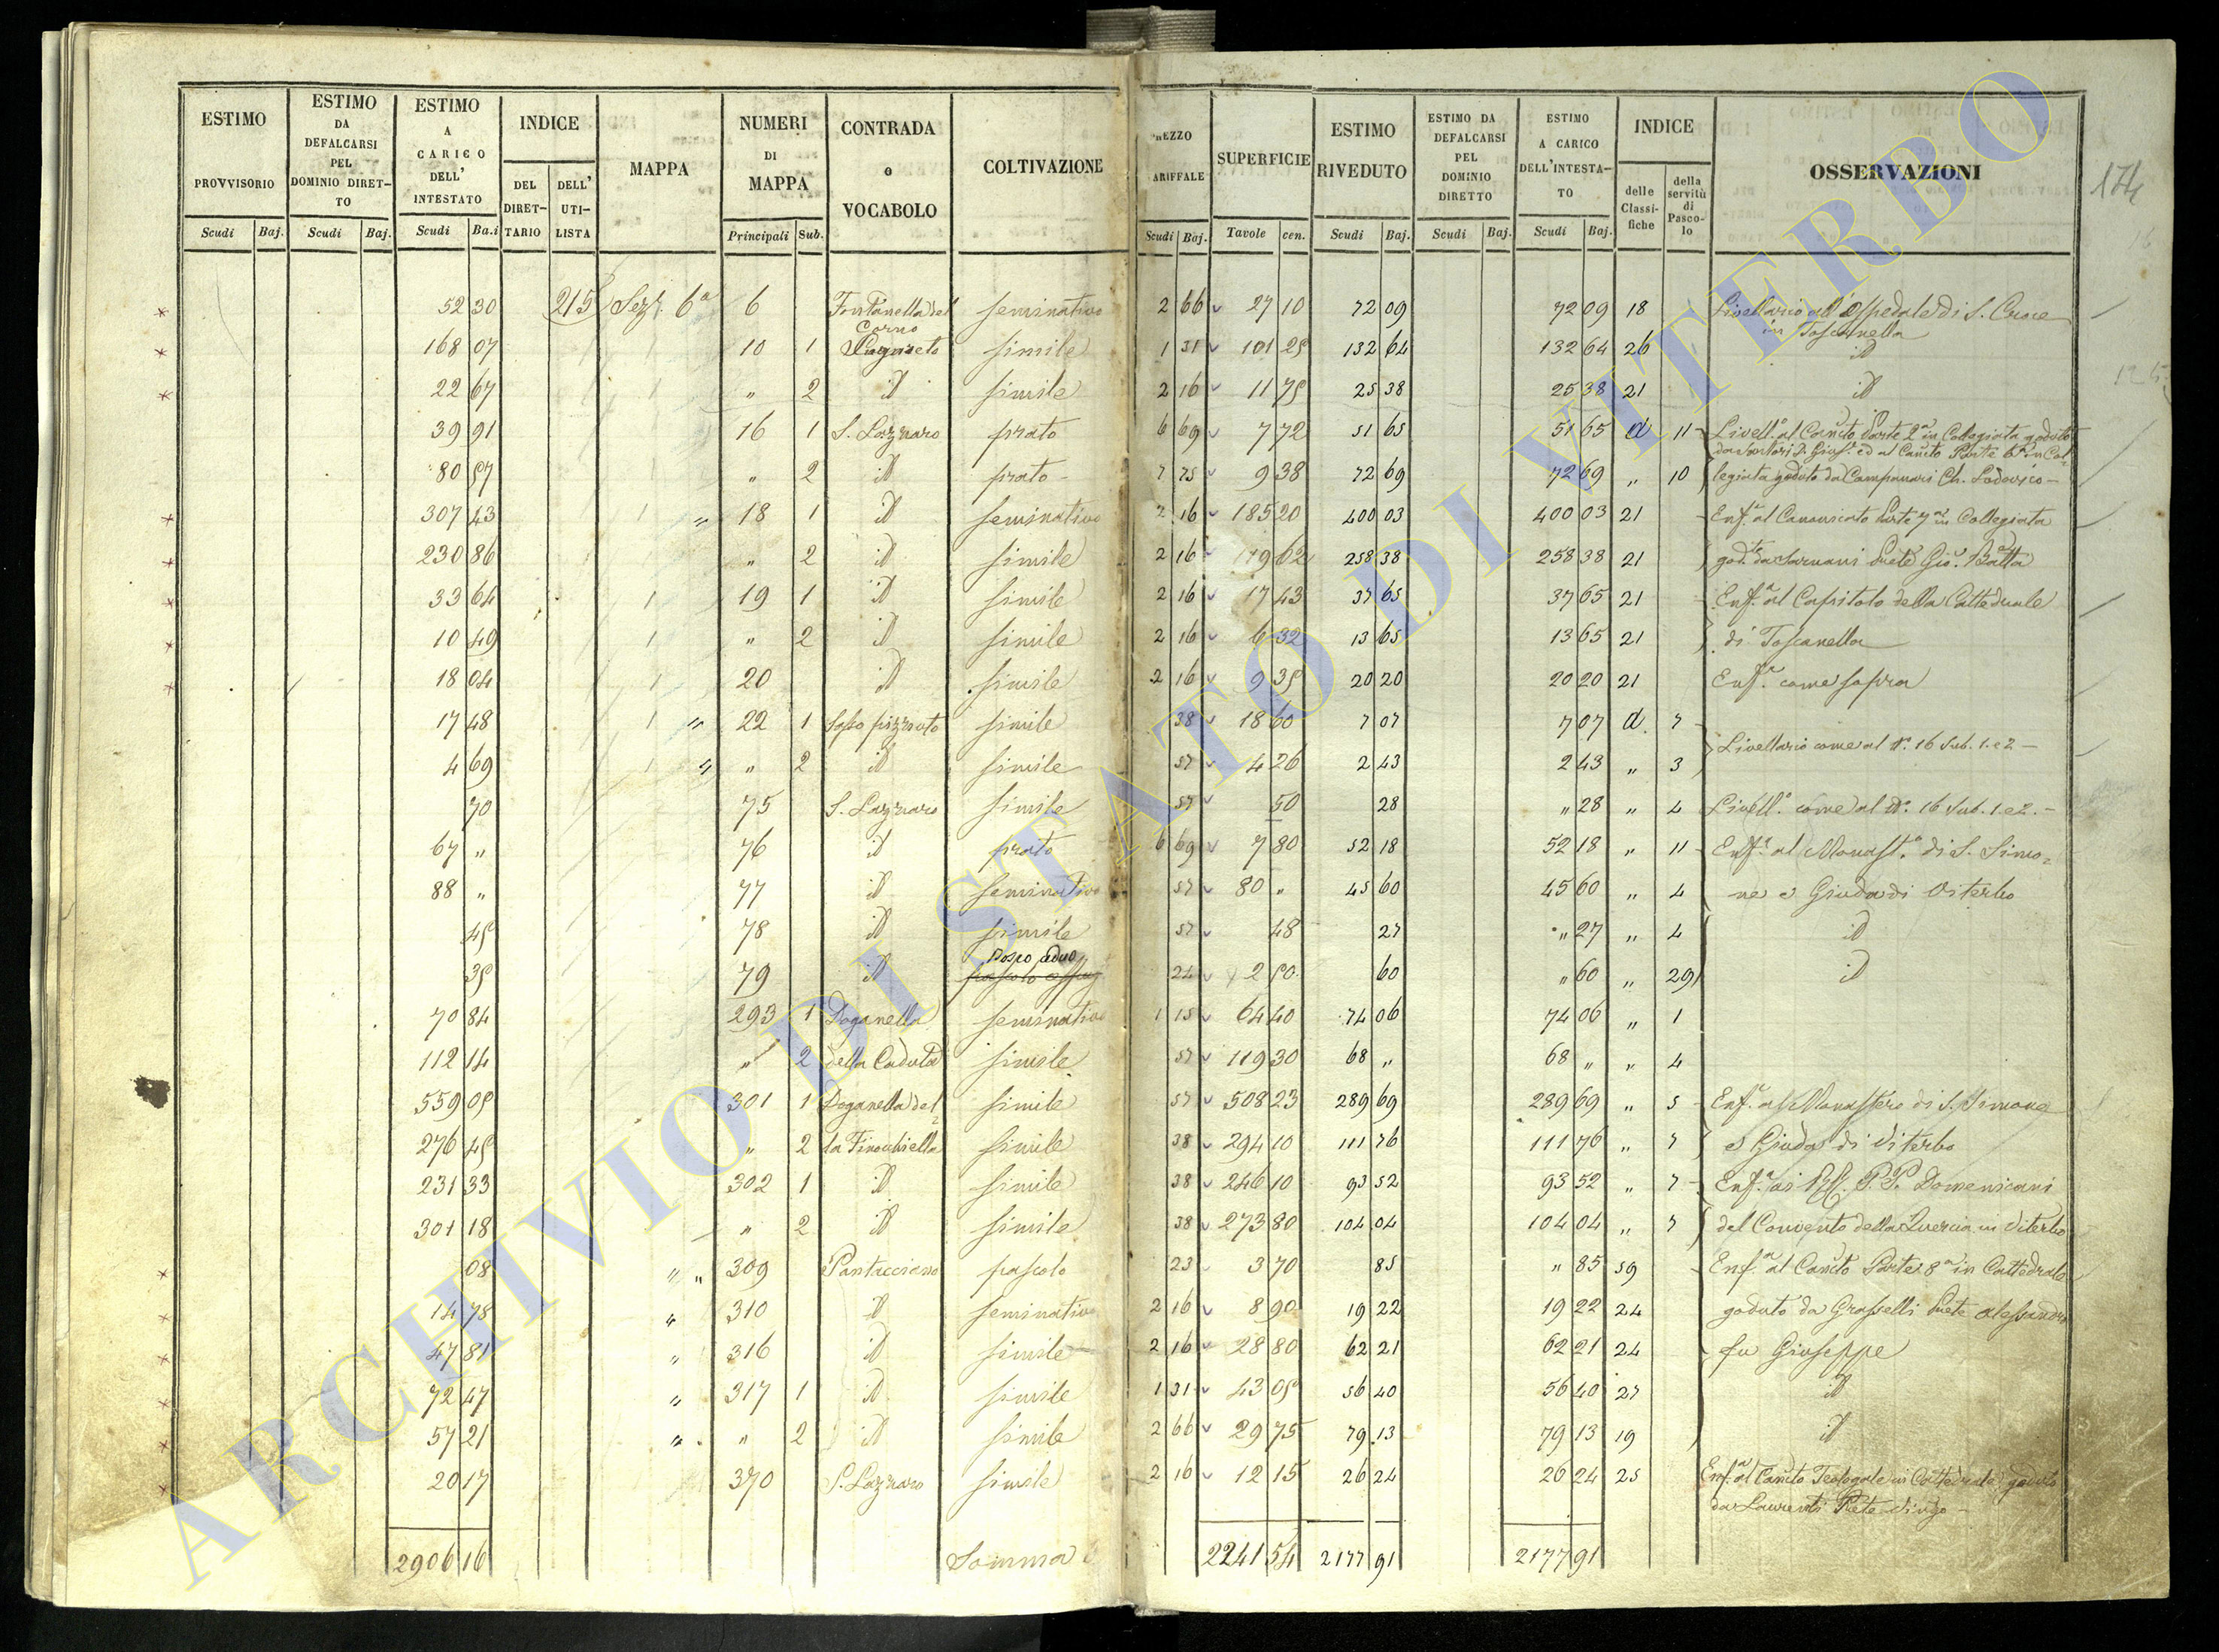 ESTIMO PROVVISORIO | ESTIMO DA DEFALCARSI PEL DOMINIO DIRETTO | ESTIMO A CARICO DELL' INTESTATO | INDICE | MAPPA | NUMERI DI MAPPA | CONTRADA o VOCABOLO | COLTIVAZIONE | SUPERFICIE | ESTIMO RIVEDUTO | ESTIMO DA DEFALCARSI PEL DOMINIO DIRETTO | ESTIMO A CARICO DELL'INTESTATO | INDICE | OSSERVAZIONI
DEL DIRETTARIO | DELL' UTILISTA | delle Classifiche | della servitù di Pascolo
Scudi | Baj. | Scudi | Baj. | Scudi | Ba.i | Principali | Sub. | Scudi | Baj. | Tavole | cen. | Scudi | Baj. | Scudi | Baj. | Scudi | Baj.
174
52 30 | 215 | Sez. 6a | 6 | Fontanella del Corno | seminativo | 2 66 | 27 10 | 72 09 | 72 09 | 18 | Livellario all'Ospedale di S. Croce in Toscanella
168 07 | 10 | 1 | simile | 1 31 | 101 25 | 132 64 | 132 64 | 26 | id
22 67 | " | 2 | id | simile | 2 16 | 11 75 | 25 38 | 25 38 | 21 | id
39 91 | 16 | 1 | S. Lazzaro | prato | 6 69 | 7 72 | 51 65 | 51 65 | d | 11 | Livell.o al Can.to Parte 2a in Collegiata goduto
80 57 | " | 2 | id | prato | 7 75 | 9 38 | 72 69 | 72 69 | " | 10 | legiata goduto da Campanari Ch. Lodovico
307 43 | " | 18 | 1 | id | seminativo | 2 16 | 185 20 | 400 03 | 400 03 | 21 | Enf.a al Canonicato Parte 7a in Collegiata
230 86 | " | 2 | id | simile | 2 16 | 119 62 | 258 38 | 258 38 | 21 | Prete Gio. Batta
33 64 | 19 | 1 | id | simile | 2 16 | 17 43 | 37 65 | 37 65 | 21 | Enf.a al Capitolo della Cattedrale
10 49 | " | 2 | id | simile | 2 16 | 6 32 | 13 65 | 13 65 | 21 | di Toscanella
18 04 | 20 | id | simile | 2 16 | 9 35 | 20 20 | 20 20 | 21 | Enf.a come sopra
17 48 | " | 22 | 1 | Sasso pizzuto | simile | 38 | 18 60 | 7 07 | 7 07 | d | 7
4 69 | " | " | 2 | id | simile | 57 | 4 26 | 2 43 | 2 43 | " | 3 | Livellario come al N. 16 Sub. 1. e 2
70 | 75 | S. Lazzaro | simile | 57 | 50 | 28 | " 28 | " | 4 | Livell.o come al N. 16 Sub. 1. e 2.
67 " | 76 | id | prato | 6 69 | 7 80 | 52 18 | 52 18 | " | 11 | Enf.a al Monast.o di S. Simo=
88 " | 77 | id | seminativo | 57 | 80 " | 45 60 | 45 60 | " | 4 | ne e Giuda di Viterbo
45 | 78 | id | simile | 57 | 48 | 27 | " 27 | " | 4 | id
35 | 79 | id | Bosco ceduo | 24 | 2 50 | 60 | " 60 | " | 29 | id
70 84 | 293 | 1 | Doganella | seminativo | 1 15 | 64 40 | 74 06 | 74 06 | " | 1
112 14 | " | 2 | della Caduta | simile | 57 | 119 30 | 68 " | 68 " | " | 4
559 05 | 301 | 1 | Doganella del= | simile | 57 | 508 23 | 289 69 | 289 69 | " | 5 | Enf.a al Monastero di S. Simone
276 45 | " | 2 | la Finochiella | simile | 38 | 294 10 | 111 76 | 111 76 | " | 7 | e Giuda di Viterbo
231 33 | 302 | 1 | id | simile | 38 | 246 10 | 93 52 | 93 52 | " | 7 | Enf.a ai P.P. Domenicani
301 18 | " | 2 | id | simile | 38 | 273 80 | 104 04 | 104 04 | " | 7 | del Convento della Quercia in Viterbo
08 | " | 309 | Pantacciano | pascolo | 23 | 3 70 | 85 | " 85 | 59 | Enf.a al Can.to Parte 8a in Cattedrale
14 78 | " | 310 | id | seminativo | 2 16 | 8 90 | 19 22 | 19 22 | 24 | goduto da Grasselli Prete Alessandro
47 81 | " | 316 | id | simile | 2 16 | 28 80 | 62 21 | 62 21 | 24 | fu Giuseppe
72 47 | " | 317 | 1 | id | simile | 1 31 | 43 05 | 56 40 | 56 40 | 27 | id
57 21 | " | " | 2 | id | simile | 2 66 | 29 75 | 79 13 | 79 13 | 19 | id
20 17 | 370 | S. Lazzaro | simile | 2 16 | 12 15 | 26 24 | 26 24 | 25 | Enf.a al Can.to Teologale in Cattedrale goduto
da Laurenti Prete
2906 16 | Somma | 2241 54 | 2177 91 | 2177 91
ARCHIVIO DI STATO DI VITERBO